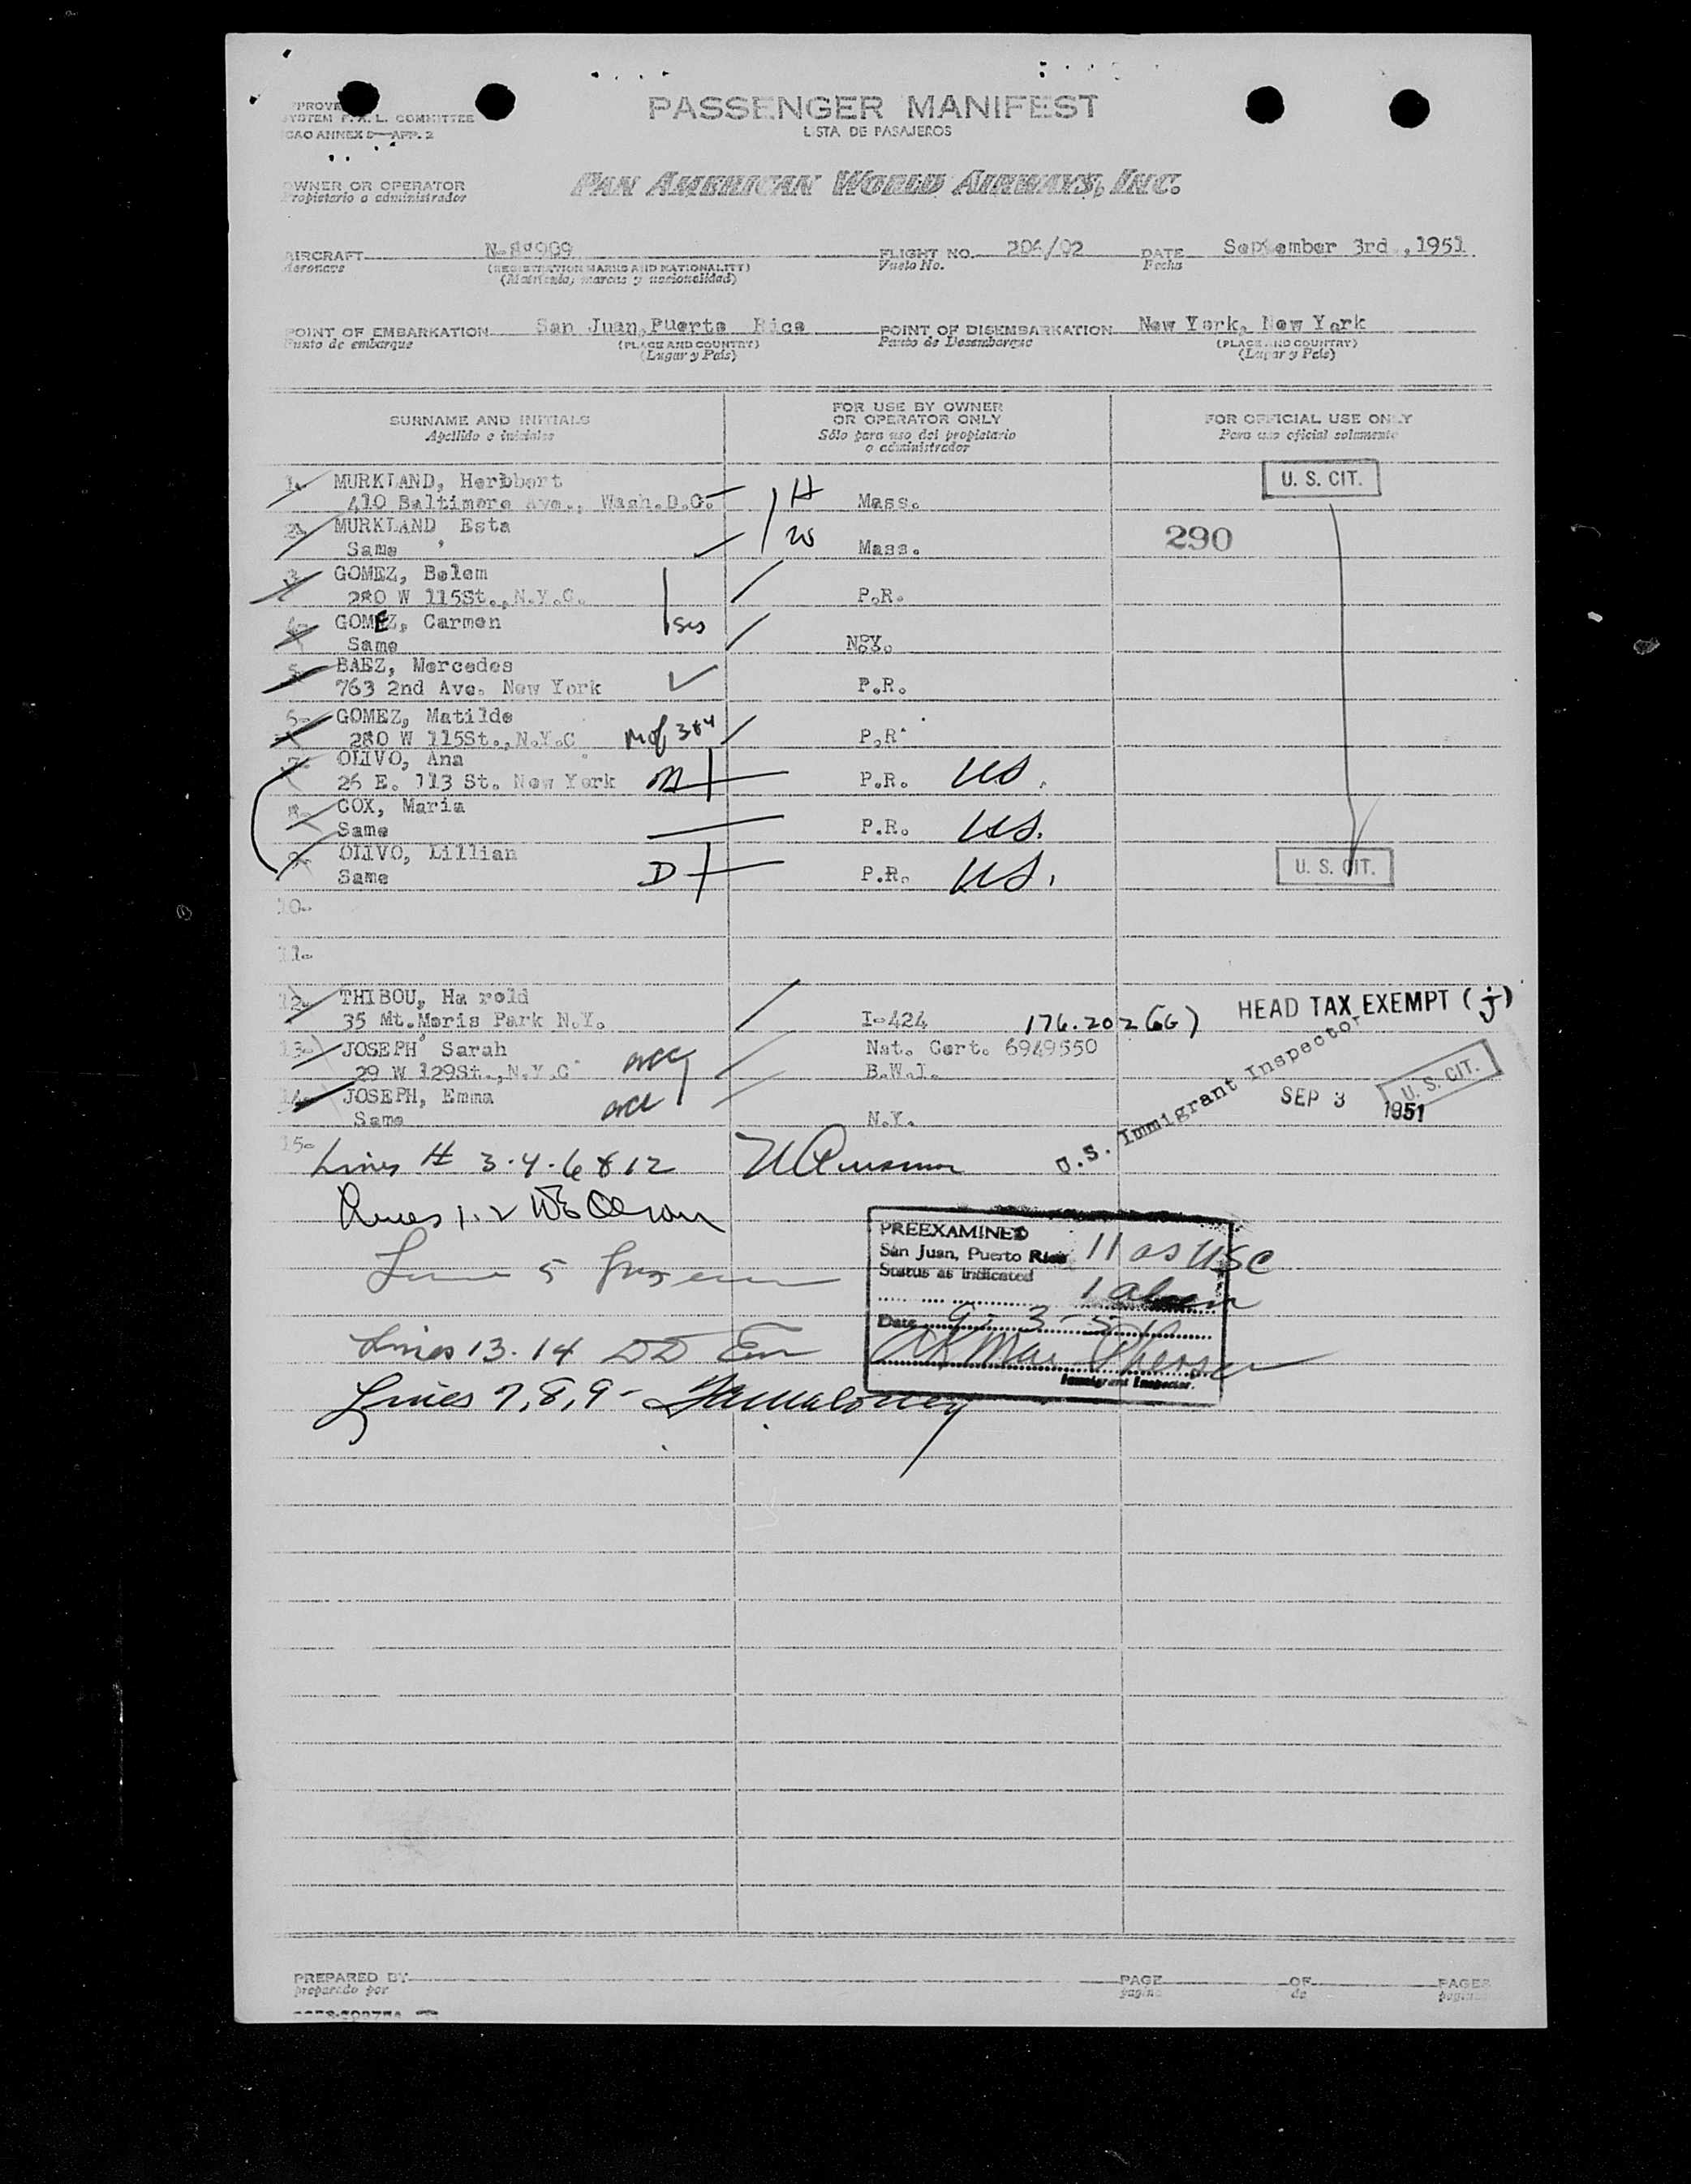 PASSENGER MANIFEST
LISTA DE PASAJEROS
SYSTEM F.A.L. COMMITTEE
ICAO ANNEX 9—APP. 2
OWNER OR OPERATOR
Propietario o administrador
PAN AMERICAN WORLD AIRWAYS, INC.
AIRCRAFT FLIGHT NO. DATE September 3rd ,1951
Aeronave Vuelo No. Fecha
(REGISTRATION MARKS AND NATIONALITY)
(Matricula, marcas y nacionalidad)
POINT OF EMBARKATION San Juan,Puerto Rico POINT OF DISEMBARKATION New York, New York
Punto de embarque (PLACE AND COUNTRY) Punto de Desembarque (PLACE AND COUNTRY)
(Lugar y País) (Lugar y País)
SURNAME AND INITIALS
Apellido e iniciales
FOR USE BY OWNER
OR OPERATOR ONLY
Sólo para uso del propietario
o administrador
FOR OFFICIAL USE ONLY
Para uso oficial solamente
1- MURKLAND, Heribbert U. S. CIT.
410 Baltimore Ave., Wash.D.C. H Mass.
2- MURKLAND Esta 290
Same , W Mass.
3- GOMEZ, Belem
280 W 115St.,N.Y.C. P.R.
4- GOMEZ, Carmen sis
Same N.Y.
5- BAEZ, Mercedes
763 2nd Ave. New York P.R.
6- GOMEZ, Matilde
280 W 115St.,N.Y.C M of 3&4 P.R.
7- OLIVO, Ana
26 E. 113 St. New York M P.R. US.
8- COX, Maria
Same P.R. US.
9- OLIVO, Lillian
Same D P.R. US. U. S. CIT.
10-
11-
12- THIBOU, Ha rold HEAD TAX EXEMPT (j)
35 Mt.Moris Park N.Y. I-424 176.202(GG)
13- JOSEPH Sarah Nat. Cert. 6949550
29 W 129St.,N.Y.C B.W.I.
U.S. Immigrant Inspector
SEP 3 1951 U. S. CIT.
14- JOSEPH, Emma
Same N.Y.
15-
Lines # 3.4.6 & 12
Lines 1.2
Line 5
Lines 13.14
Lines 7,8,9-
PREEXAMINED
San Juan, Puerto Rico 11 as USC
Status as indicated
1 alien
Date 9-3-51
Immigrant Inspector.
PREPARED BY PAGE OF PAGES
preparado por pagina de paginas